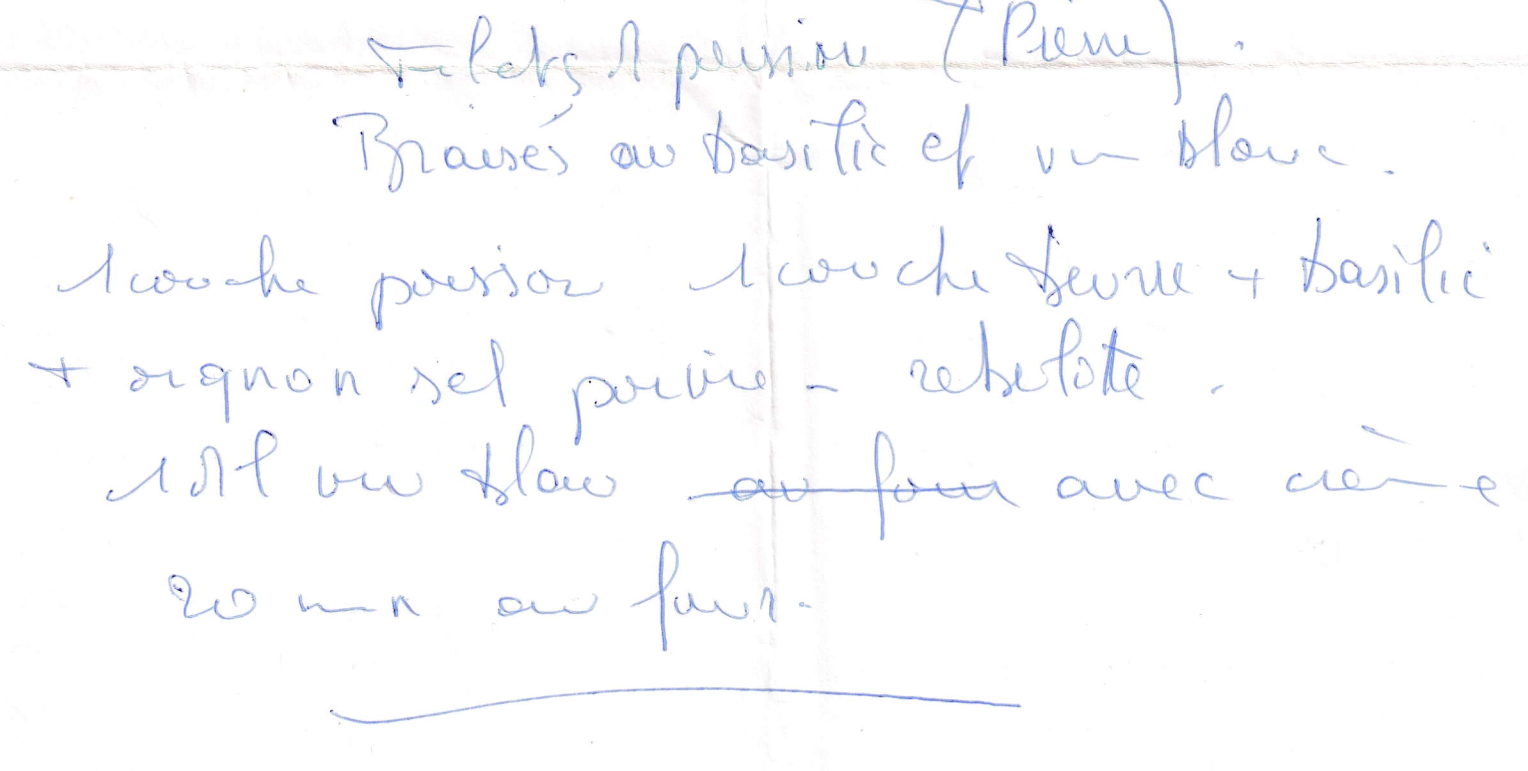 Filets d poisson (Pierre).
Braisés au basilic et vin blanc.
1 couche poisson 1 couche beurre + basilic
+ oignon sel poivre - rebelotte.
1 dl vin blanc au four avec crème
20 mn au four.